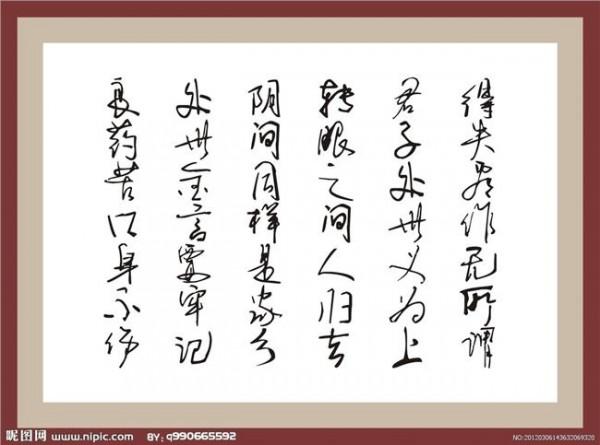 得失看作无所谓
君子处世义为上
转眼之间人归去
阴间同样是家乡
处世金言要牢记
良药苦口身不伤
昵图网 www.nipic.com
BY: q990665592
NO:20120306143632069320